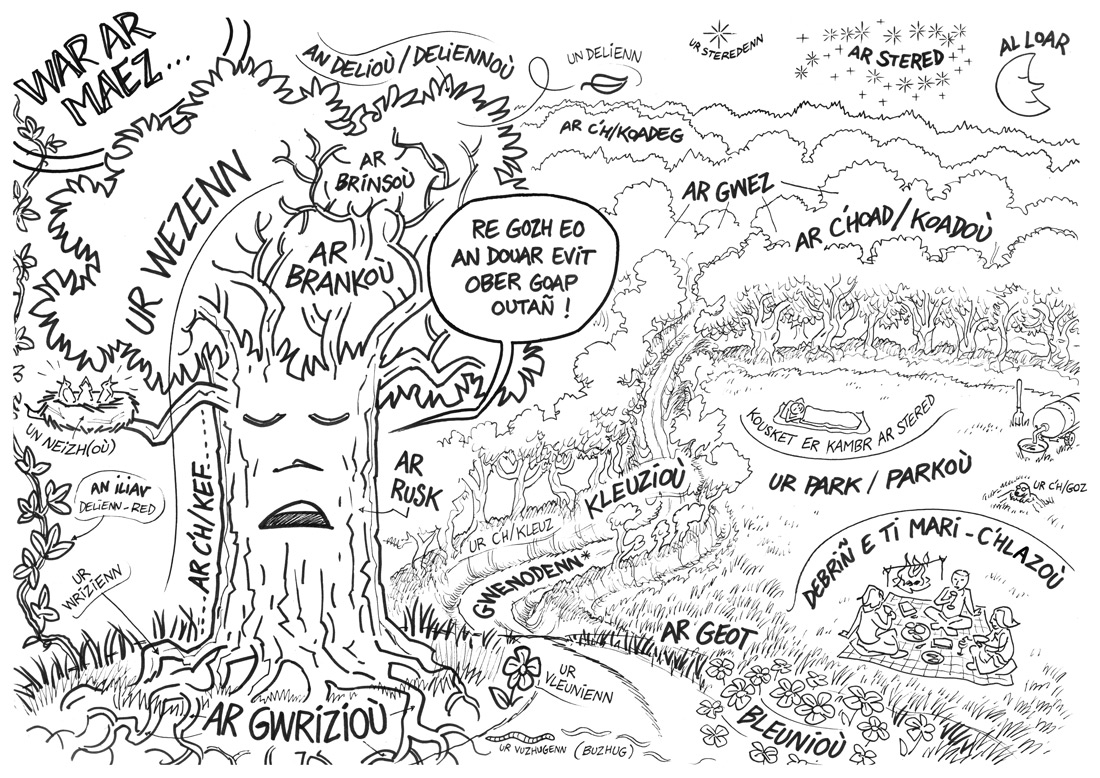 WAR AR
MAEZ...
AN DELIOÙ / DELIENNOÙ
UN DELIENN
UR STEREDENN
AR STERED
AL LOAR
AR C'H/KOADEG
AR GWEZ
AR C'HOAD / KOADOÙ
UR WEZENN
AR
BRINSOÙ
AR
BRANKOÙ
RE GOZH EO
AN DOUAR EVIT
OBER GOAP
OUTAÑ !
UN NEIZH(OÙ)
AN ILIAV
DELIENN-RED
UR
WRIZIENN
AR C'H/KEF
AR
RUSK
AR GWRIZIOÙ
KLEUZIOÙ
UR CH/KLEUZ
GWENODENN*
KOUSKET ER KAMBR AR STERED
UR PARK / PARKOÙ
UR CH/GOZ
DEBRIÑ E TI MARI-C'HLAZOÙ
AR GEOT
UR
VLEUNIENN
BLEUNIOÙ
UR VUZHUGENN (BUZHUG)